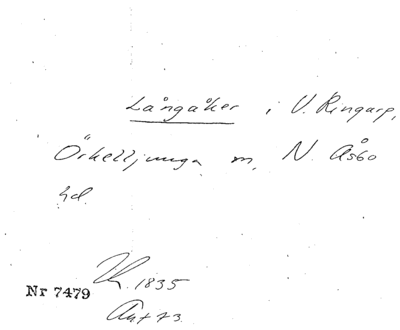 Långåker i V. Ringarp,
Örkelljunga m, N. Åsbo
hd.
1835
Nr 7479
Ant 73.